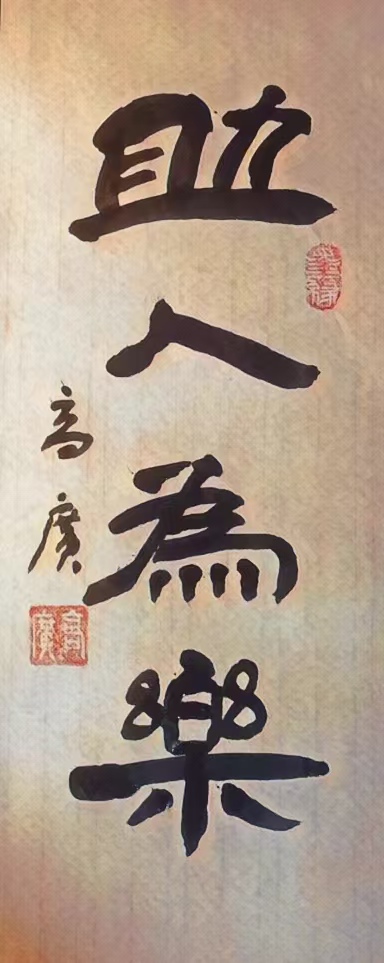 助人為樂
高廣
高廣